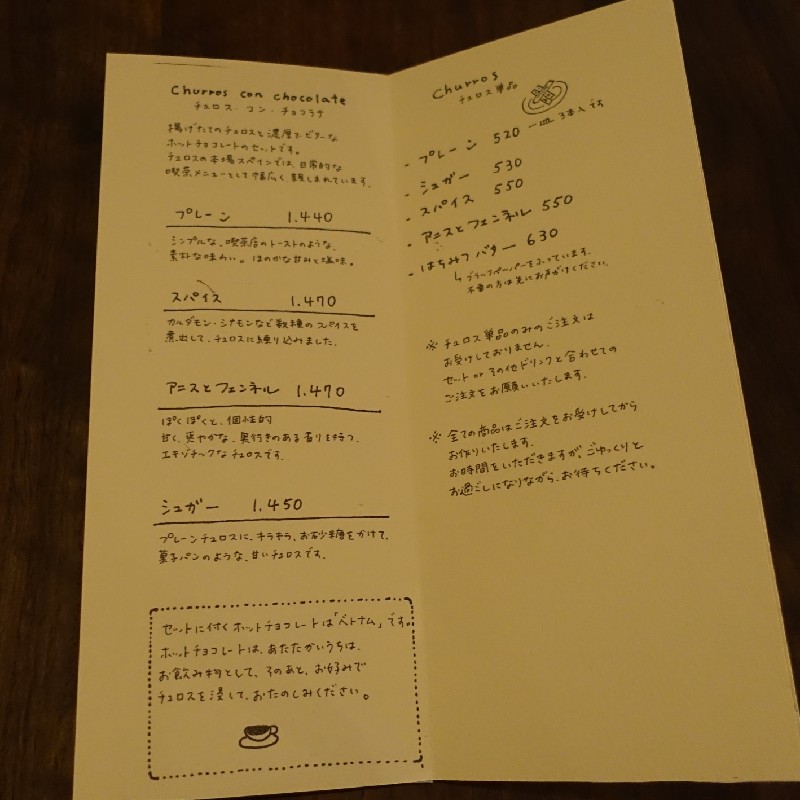 Churros con chocolate
チュロス・コン・チョコラテ
揚げたてのチュロスと濃厚でビターな
ホットチョコレートのセットです。
チュロスの本場スペインでは、日常的な
喫茶メニューとして幅広く親しまれています。
プレーン 1.440
シンプルな、喫茶店のトーストのような、
素朴な味わい。ほのかな甘みと塩味。
スパイス 1.470
カルダモン・シナモンなど数種のスパイスを
煮出して、チュロスに練り込みました。
アニスとフェンネル 1.470
ぱくぱくと、個性的
甘く、爽やかな、奥行きのある香りを持つ、
エキゾチックなチュロスです。
シュガー 1.450
プレーンチュロスに、キラキラ、お砂糖をかけて、
菓子パンのような、甘いチュロスです。
セットに付くホットチョコレートは「ベトナム」です。
ホットチョコレートは、あたたかいうちは、
お飲み物として、そのあと、お好みで
チュロスを浸して、おたのしみください。
Churros
チュロス単品
- プレーン 520 一皿 3本入です
- シュガー 530
- スパイス 550
- アニスとフェンネル 550
- はちみつバター 630
↳ ブラックペーパーをふっています。
不要の方は先にお声がけください。
※ チュロス単品のみのご注文は
お受けしておりません。
セット or その他ドリンクと合わせての
ご注文をお願いいたします。
※ 全ての商品はご注文をお受けしてから
お作りいたします。
お時間をいただきますが、ごゆっくりと
お過ごしになりながら、お待ちください。